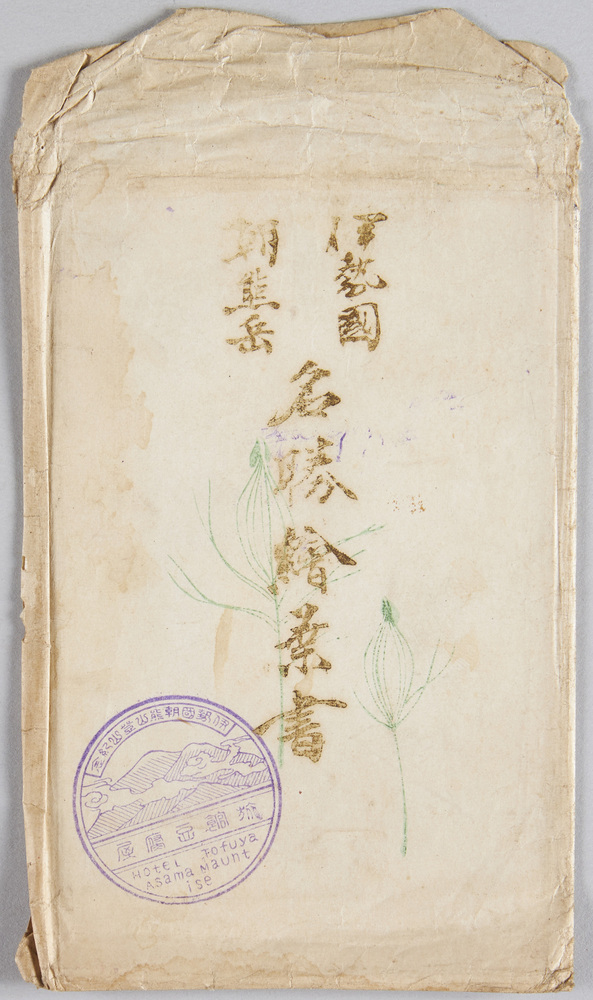 伊勢國
朝熊岳
名勝繪葉書
伊勢國朝熊山登山紀念
旅館豆腐屋
HOTEL Tofuya
Asama Maunt
ise